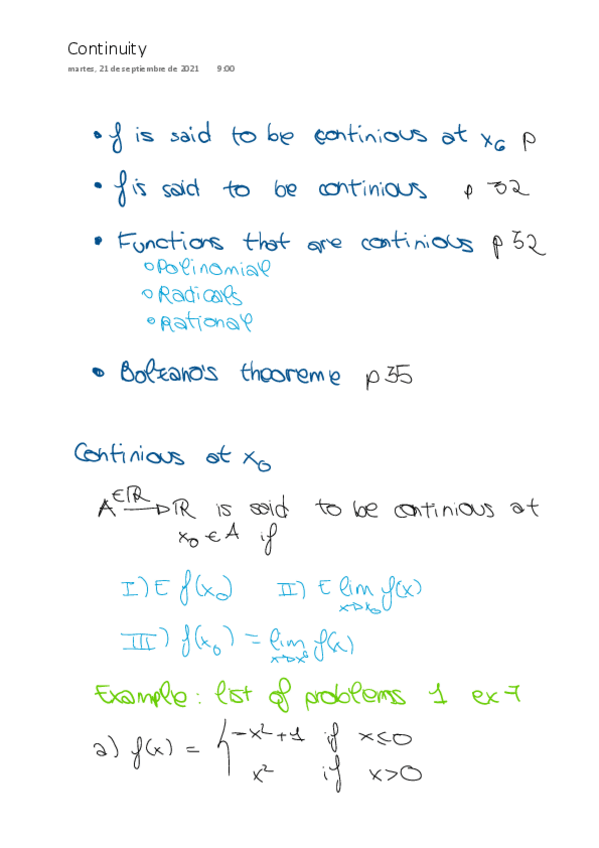 Continuity
martes, 21 de septiembre de 2021 9:00
• f is said to be continious at x₀ p
• f is said to be continious p 32
• Functions that are continious p 32
o Polinomial
o Radicals
o Rational
• Bolzano's theoreme p 35
Continious at x₀
A ∈ℝ → ℝ is said to be continious at
x₀ ∈ A if
I) E f(x₀) II) E lim f(x)
x→x₀
III) f(x₀) = lim f(x)
x→x₀
Example: list of problems 1 ex 7
a) f(x) = { -x² + 1 if x≤0
x² if x>0